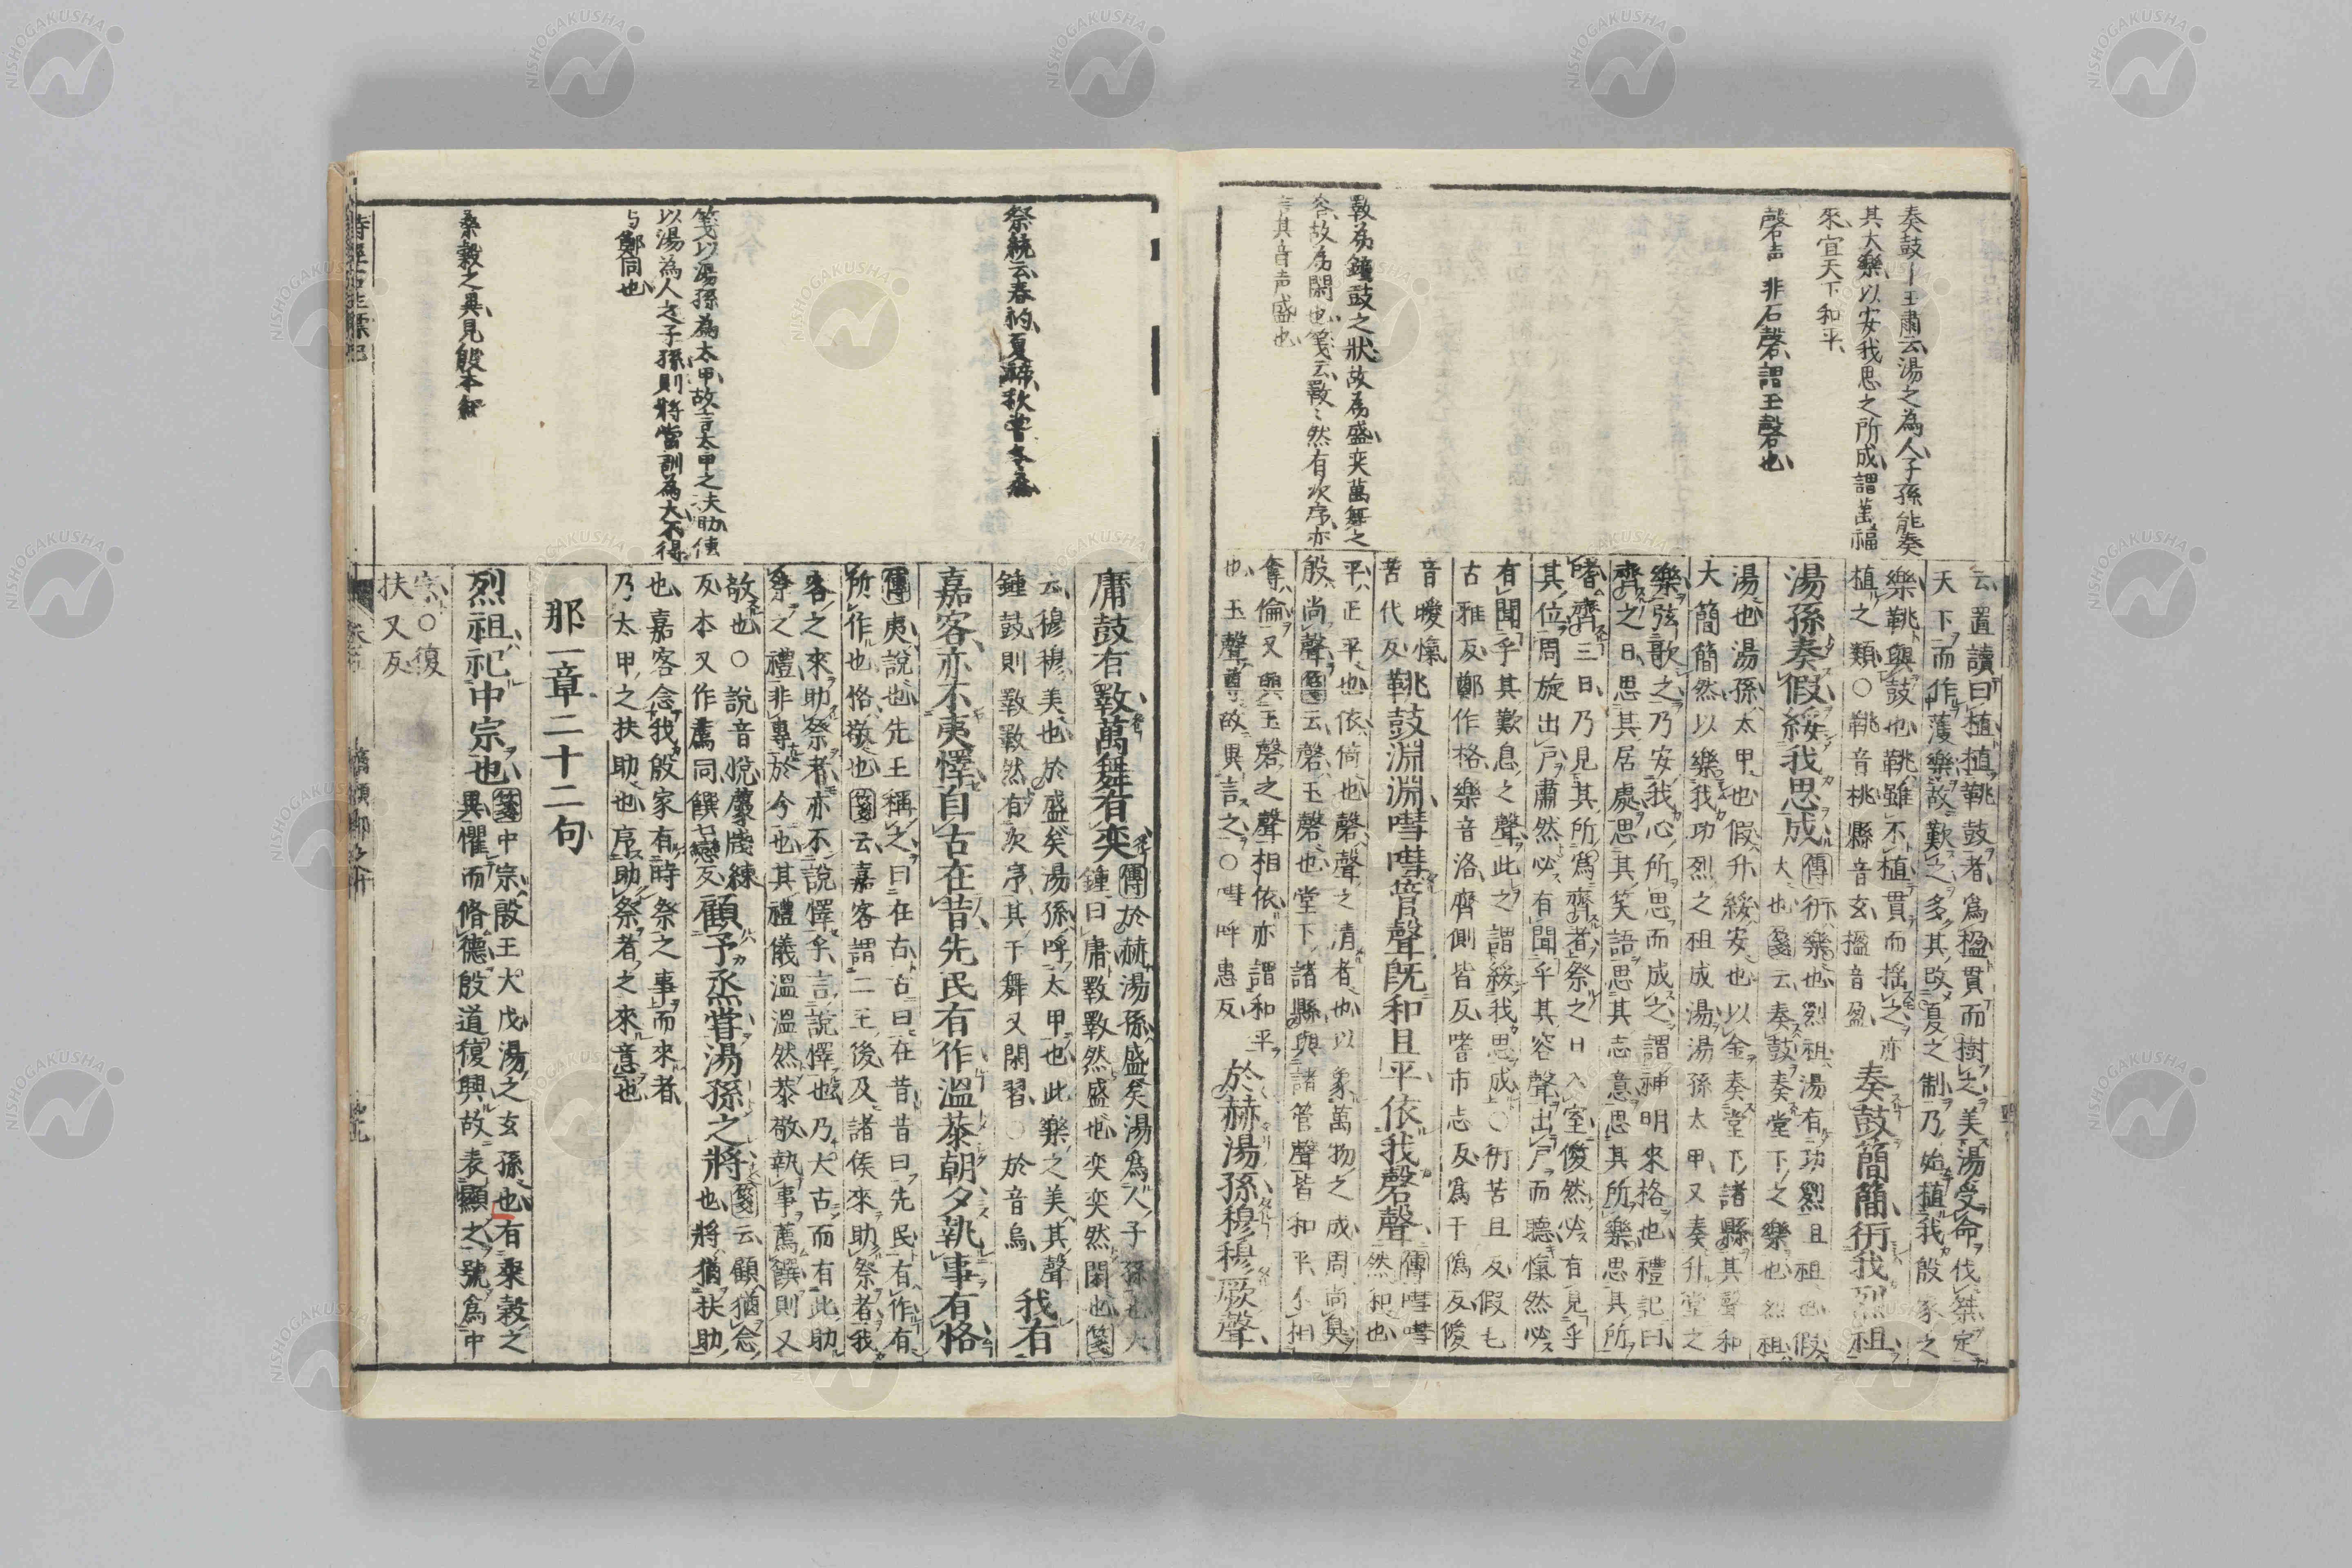 奏鼓ー王肅云湯之為人子孫能奏
其大樂以安我思之所成謂萬福
來宜天下和平
磬声 非石磬謂玉磬也
斁為鐘鼓之狀故為盛奕萬舞之
容故為閑也箋云斁〻然有次序亦
言其音声盛也
云置讀曰植植鞉鼓者為楹貫而樹之美湯受命伐桀定
天下而作濩樂故歎之多其改夏之制乃始植我殷家之
樂鞉與鼓也鞉雖不植貫而揺之亦
植之類○鞉音桃縣音玄楹音盈
奏鼓簡簡衎我烈祖
湯孫奏假綏我思成
傳衎樂也烈祖湯有功烈且祖也假
大也箋云奏鼓奏堂下之樂也烈祖
湯也湯孫太甲也假升綏安也以金奏堂下諸縣其聲和
大簡然以樂我功烈之祖成湯湯孫太甲又奏升堂之
樂弦歌之乃安我心所思而成之謂神明來格也禮記曰
齊之日思其居處思其笑語思其志意思其所樂思其所
嗜齊三日乃見其所為齊者祭之日入室僾然必有見乎
其位周旋出戶肅然必有聞乎其容聲出戶而聽愾然必
有聞乎其歎息之聲此之謂綏我思成○衎苦旦反假毛
古雅反鄭作格樂音洛齊側皆反嗜市志反為于偽反僾
音曖愾
苦代反
鞉鼓淵淵嘒嘒管聲既和且平依我磬聲
傳嘒嘒
然和也
平正平也依倚也磬聲之清者也以象萬物之成周尚臭
殷尚聲箋云磬玉磬也堂下諸縣與諸管聲皆和平不相
奪倫又與玉磬之聲相依亦謂和平
也玉聲尊故異言之○嘒呼惠反
於赫湯孫穆穆厥聲
祭統云春礿夏禘秋嘗冬烝
箋以湯孫為太甲故言太甲之扶助傳
以湯為人之子孫則將當訓為大不得
与鄭同也
桑穀之異見殷本紀
庸鼓有斁萬舞有奕
傳於赫湯孫盛矣湯為人子孫也大
鍾曰庸斁斁然盛也奕奕然閑也箋
云穆穆美也於盛矣湯孫呼太甲也此樂之美其聲
鍾鼓則斁斁然有次序其干舞又閑習○於音烏
我有
嘉客亦不夷懌自古在昔先民有作溫恭朝夕執事有恪
傳夷說也先王稱之曰在古古曰在昔昔曰先民有作有
所作也恪敬也箋云嘉客謂二王後及諸侯來助祭者我
客之來助祭者亦不說懌乎言說懌也乃大古而有此助
祭之禮非專於今也其禮儀溫溫然恭敬執事薦饌則又
敬也○說音悅藨牋練
反本又作薦同饌士戀反
顧予烝嘗湯孫之將
箋云顧猶念
也將猶扶助
也嘉客念我殷家有時祭之事而來者
乃太甲之扶助也序助祭者之來意也
那一章二十二句
烈祖祀中宗也
箋中宗殷王大戊湯之玄孫也有桑穀之
異懼而脩德殷道復興故表顯之號為中
宗○復
扶又反